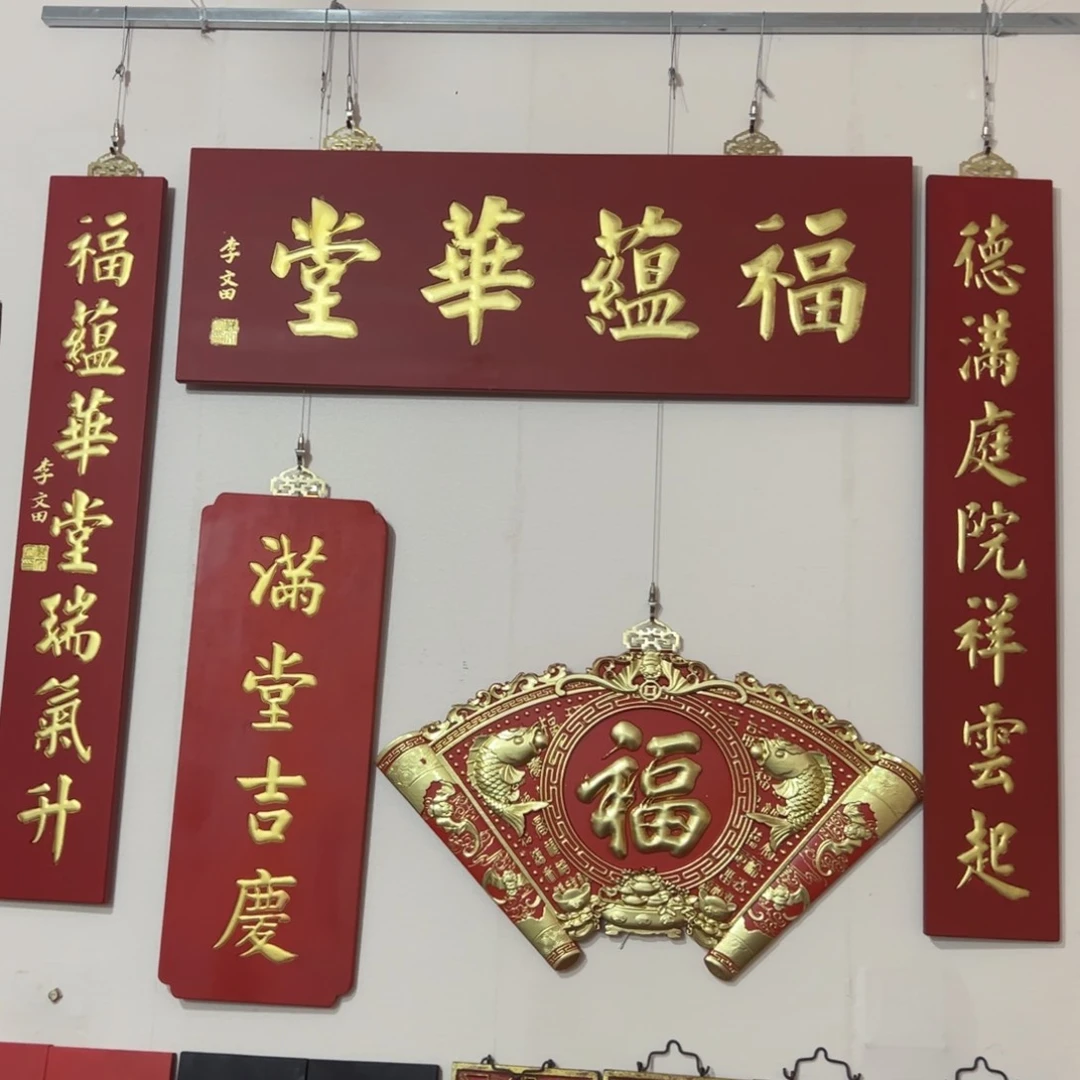 福蘊華堂
李文田
德滿庭院祥雲起
福蘊華堂瑞氣升
李文田
滿堂吉慶
福